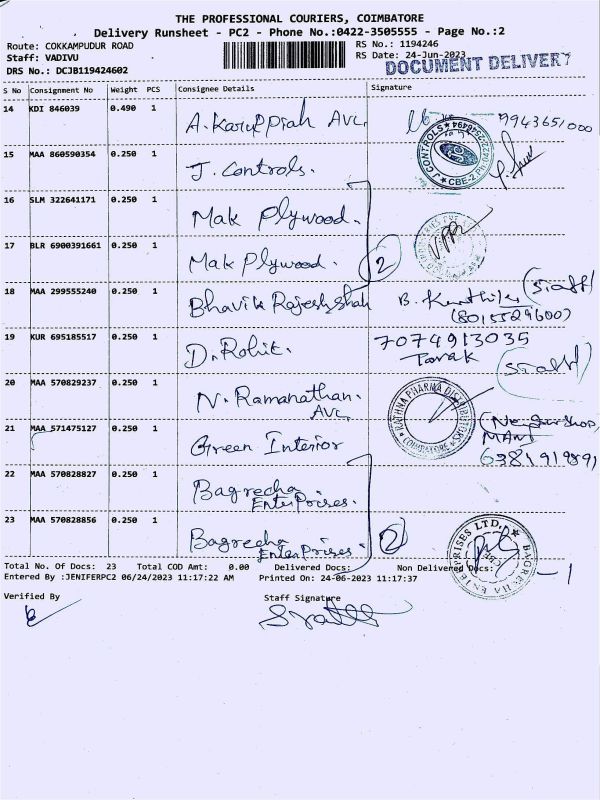 THE PROFESSIONAL COURIERS, COIMBATORE
Delivery Runsheet - PC2 - Phone No.:0422-3505555 - Page No.:2
Route: COKKAMPUDUR ROAD RS No.: 1194246
Staff: VADIVU RS Date: 24-Jun-2023
DRS No.: DCJB119424602 DOCUMENT DELIVERY
S No Consignment No Weight PCS Consignee Details Signature
14 KDI 846039 0.490 1 A. Karuppiah Avc. 9943651000
15 MAA 860590354 0.250 1 J. Controls.
J CONTROLS
CBE-2
16 SLM 322641171 0.250 1 Mak Plywood.
17 BLR 6900391661 0.250 1 Mak Plywood. 2
18 MAA 299555240 0.250 1 Bhavik Rajeshshah B. (Staff)
(8015529600)
19 KUR 695185517 0.250 1 D. Rohit. 7074913035
Tarak (Staff)
20 MAA 570829237 0.250 1 N. Ramanathan.
Avc.
RATHNA PHARMA DISTRIBUTORS
COIMBATORE
21 MAA 571475127 0.250 1 Green Interior
22 MAA 570828827 0.250 1 Bagrecha
Enterprises.
23 MAA 570828856 0.250 1 Bagrecha
Enterprises. 2
BAGRECHA ENTERPRISES LTD.,
Total No. Of Docs: 23 Total COD Amt: 0.00 Delivered Docs: Non Delivered Docs: - 1
Entered By :JENIFERPC2 06/24/2023 11:17:22 AM Printed On: 24-06-2023 11:17:37
Verified By Staff Signature